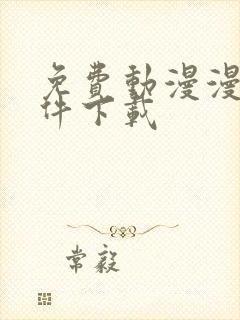 免費動漫漫
件下載
常毅